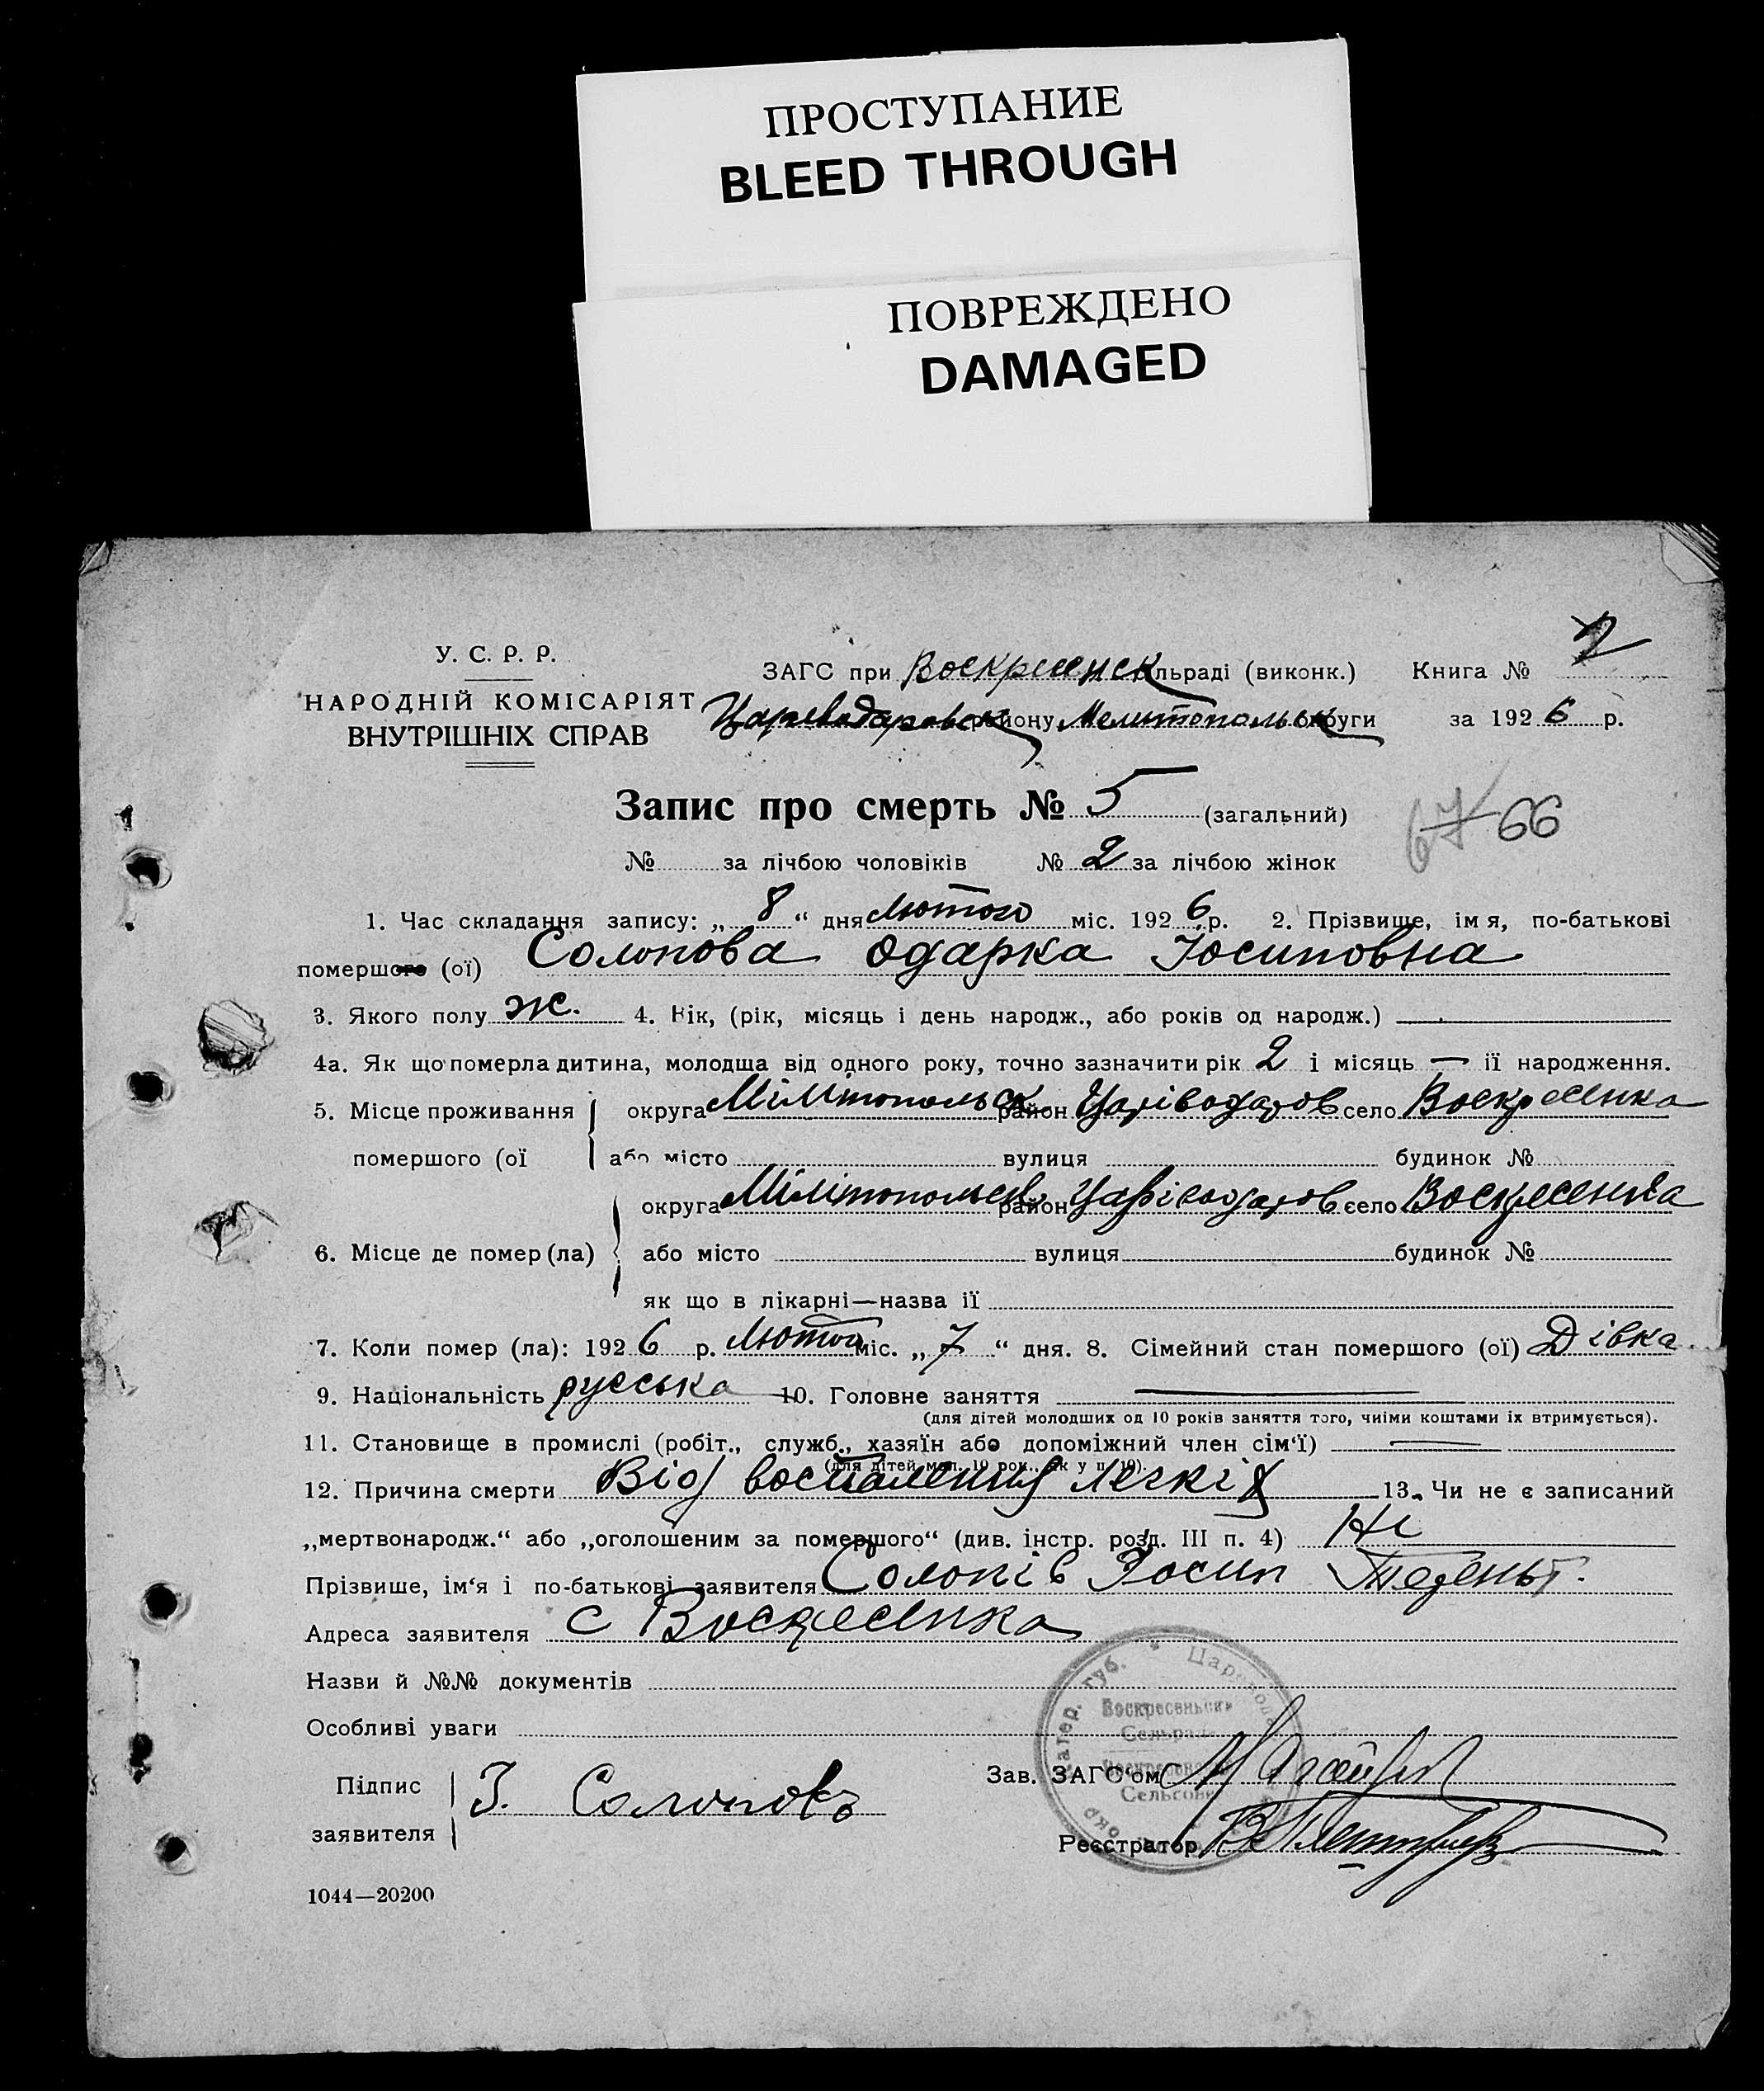 ПРОСТУПАНИЕ
BLEED THROUGH
ПОВРЕЖДЕНО
DAMAGED
У. С. Р. Р.
НАРОДНІЙ КОМІСАРІЯТ
ВНУТРІШНІХ СПРАВ
ЗАГС при Воскресенск льраді (виконк.) Книга №
Цареводаровск району Мелитопольск округи за 1926 р.
Запис про смерть № 5 (загальний)
67 66
№ за лічбою чоловіків № 2 за лічбою жінок
1. Час складання запису: „ 8 “ дня Лютого міс. 1926 р. 2. Прізвище, імя, по-батькові
помершого (ої) Солопова Одарка Іосиповна
3. Якого полу ж. 4. Вік, (рік, місяць і день народж., або років од народж.) —
4а. Як що померла дитина, молодща від одного року, точно зазначити рік 2 і місяць — ії народження.
5. Місце проживання округа Мілітопольск район Царіводаров село Воскресенка
помершого (ої або місто вулиця будинок №
округа Мілітопольск район Царіводаров село Воскресенка
6. Місце де помер (ла) або місто вулиця будинок №
як що в лікарні—назва ії
7. Коли помер (ла): 1926 р. Лютого міс. „ 7 “ дня. 8. Сімейний стан помершого (ої) Дівка
9. Національність русська 10. Головне заняття —
(для дітей молодших од 10 років заняття того, чиїми коштами іх втримується).
11. Становище в промислі (робіт., служб., хазяїн або допоміжний член сім‘ї) —
(для дітей мол. 10 рок., як у п. 10).
12. Причина смерти Від воспаления легкіх 13. Чи не є записаний
„мертвонародж.“ або „оголошеним за помершого“ (див. інстр. розд. III п. 4) Ні
Прізвище, ім‘я і по-батькові заявителя Солопів Йосип
Адреса заявителя с Воскресенка
Назви й №№ документів
Особливі уваги
Воскресеньська
Сельрада
Сельсовет
Підпис
заявителя І. Солоповъ
Зав. ЗАГС‘ом
Реєстратор
1044—20200